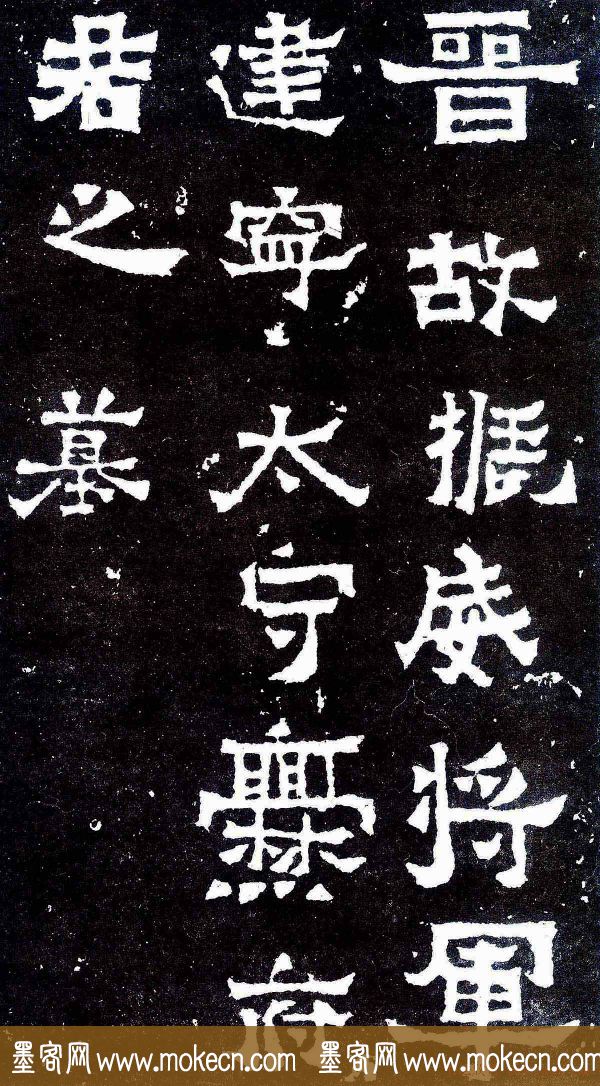 晉故振威將軍
建寧太守爨府
君之墓
墨客网www.mokecn.com 墨客网www.mokecn.com